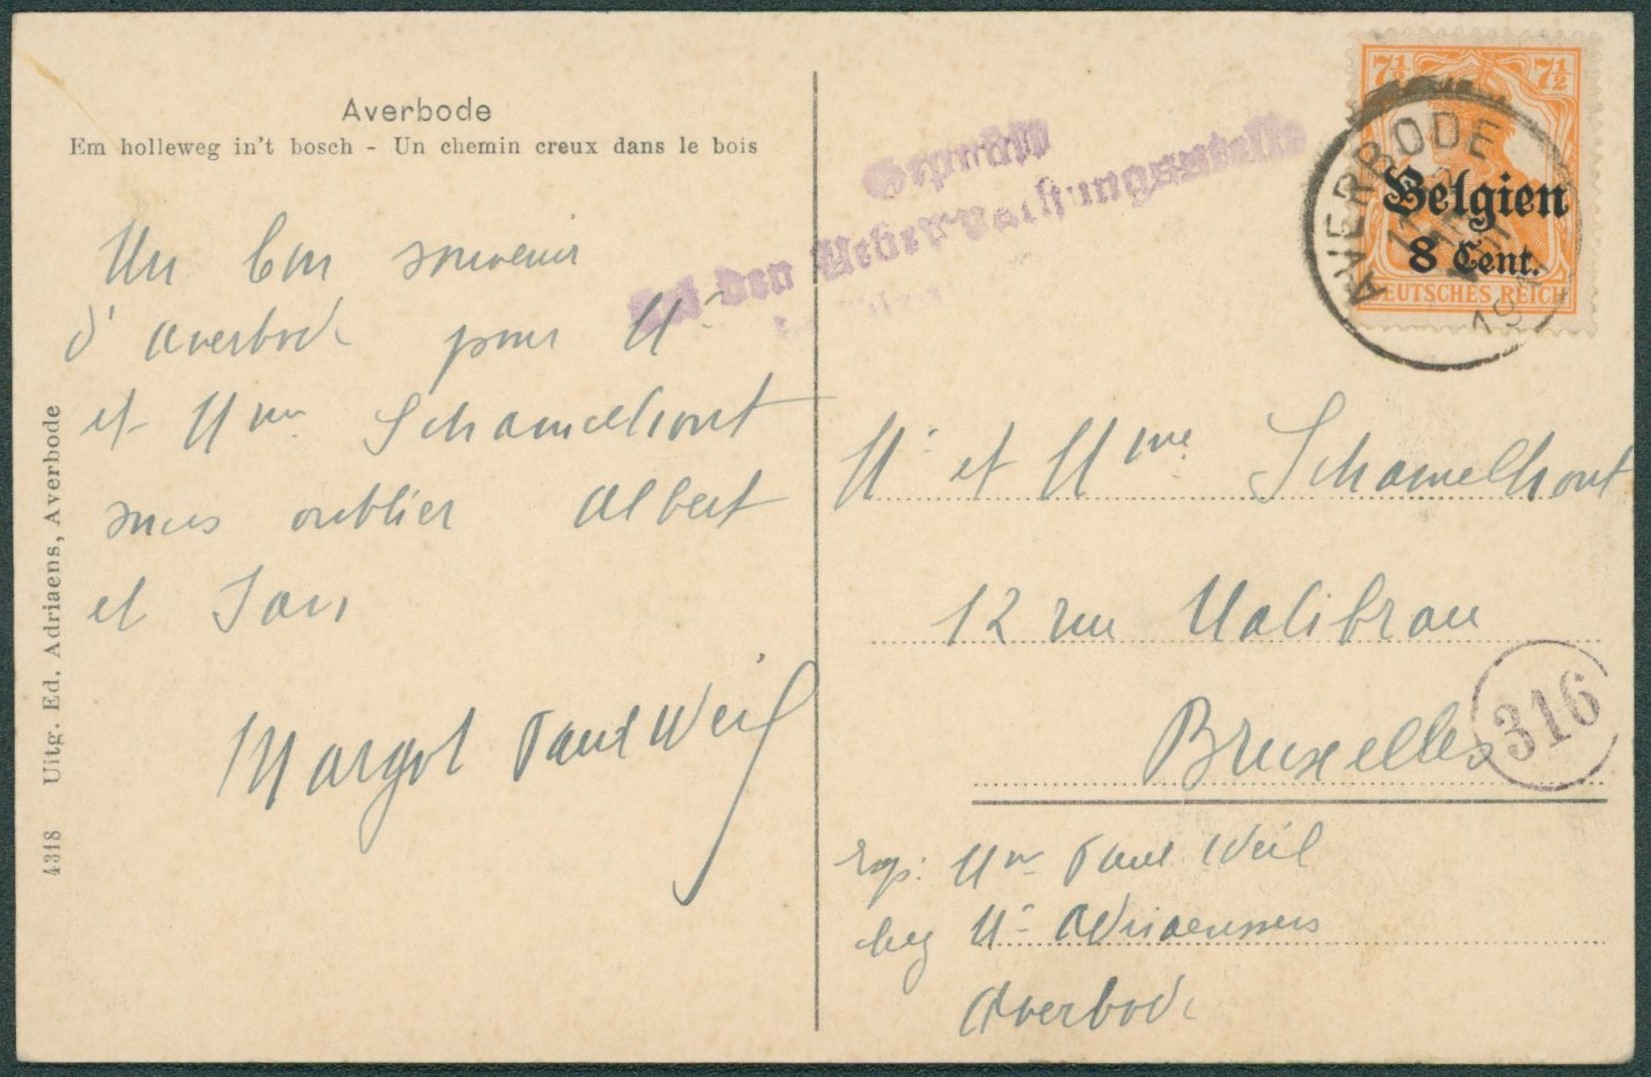 Averbode
Em holleweg in't bosch - Un chemin creux dans le bois
Un bon souvenir
d'Averbode pour Mr
et Mme Schamelhout
sans oublier Albert
et Jan
Margot Paul Weil
4318 Uitg. Ed. Adriaens, Averbode
Geprüft
den Ueberwachungsstelle
7½ 7½
Belgien
8 Cent.
DEUTSCHES REICH
AVERBODE
Mr et Mme Schamelhout
12 rue Malibran
Bruxelles
316
exp: Mme Paul Weil
chez Mr
Averbode